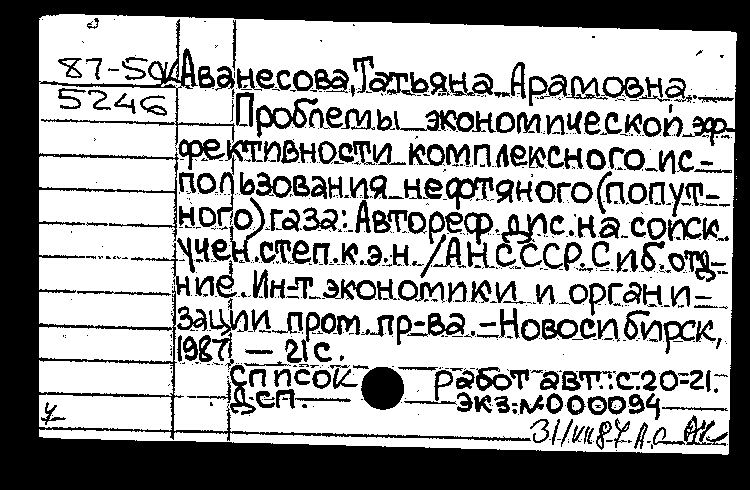 87-5ок Аванесова, Татьяна Арамовна
5246 Проблемы экономической эф-
фективности комплексного ис-
пользования нефтяного (попут-
ного) газа: Автореф. дис. на соиск.
учен. степ. к.э.н. /АН СССР. Сиб. отд-
ние. Ин-т экономики и органи-
зации пром. пр-ва. – Новосибирск,
1987. — 21 с.
Список работ авт.: с. 20-21.
ДСП. Экз. № 000094